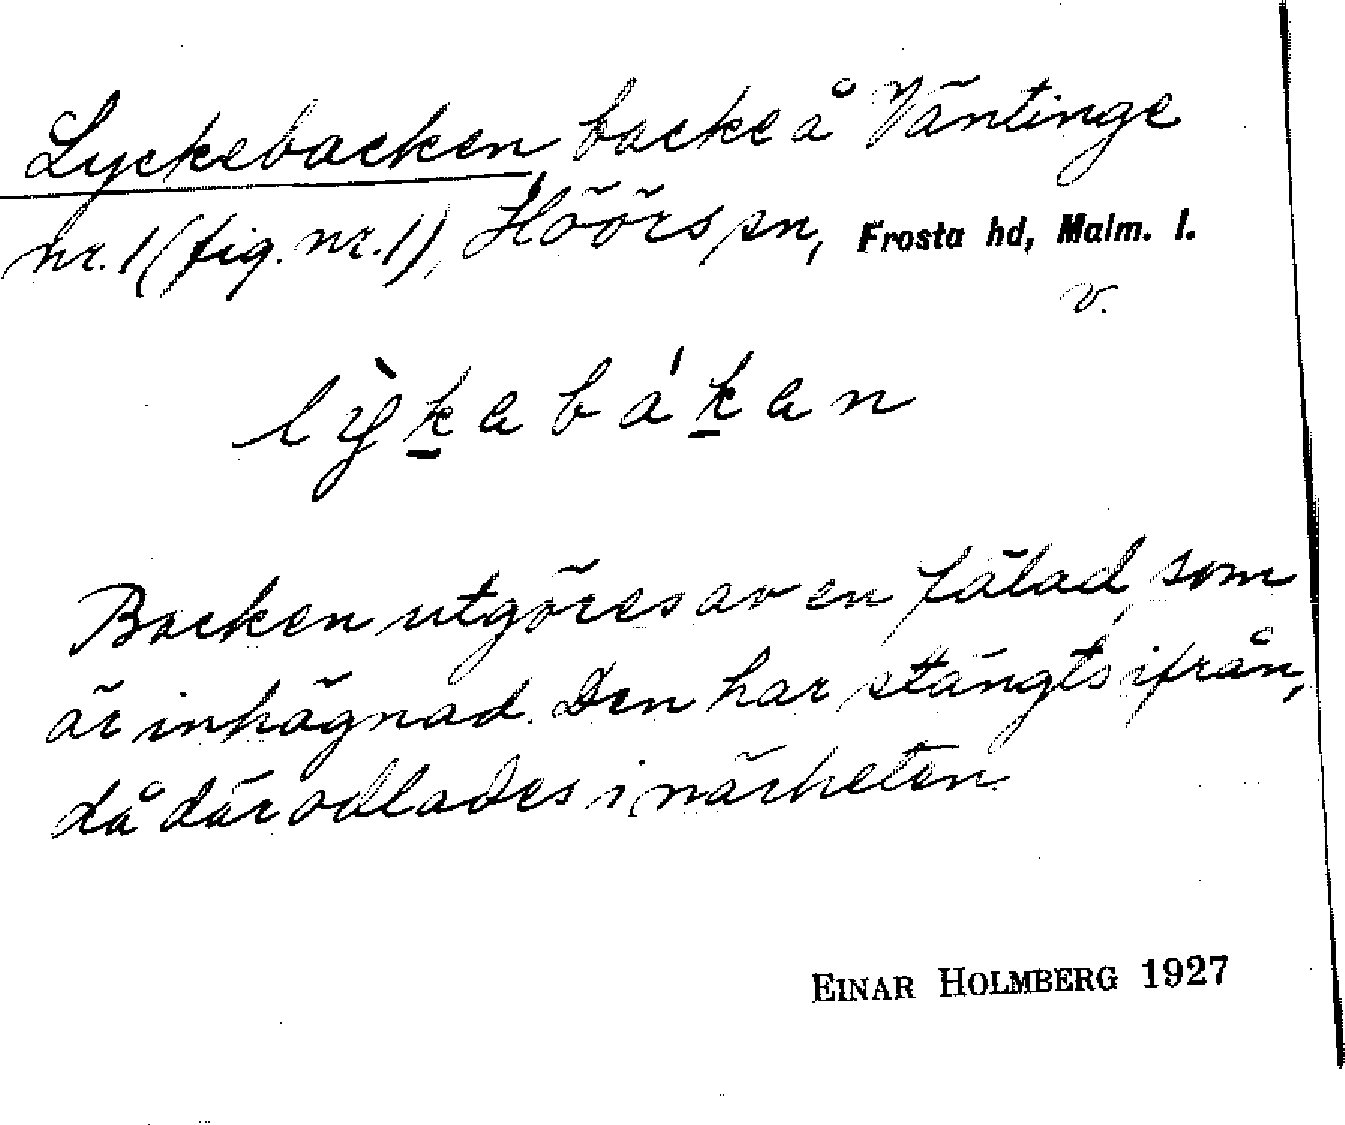 Lyckebacken, backe å Väntinge
nr. 1 (fig. nr. 1), Höörs sn, Frosta hd, Malm. l.
v.
lỳk̲ebák̲en
Backen utgöres av en fälad, som
är inhägnad. Den har stängts ifrån,
då där odlades i närheten.
EINAR HOLMBERG 1927